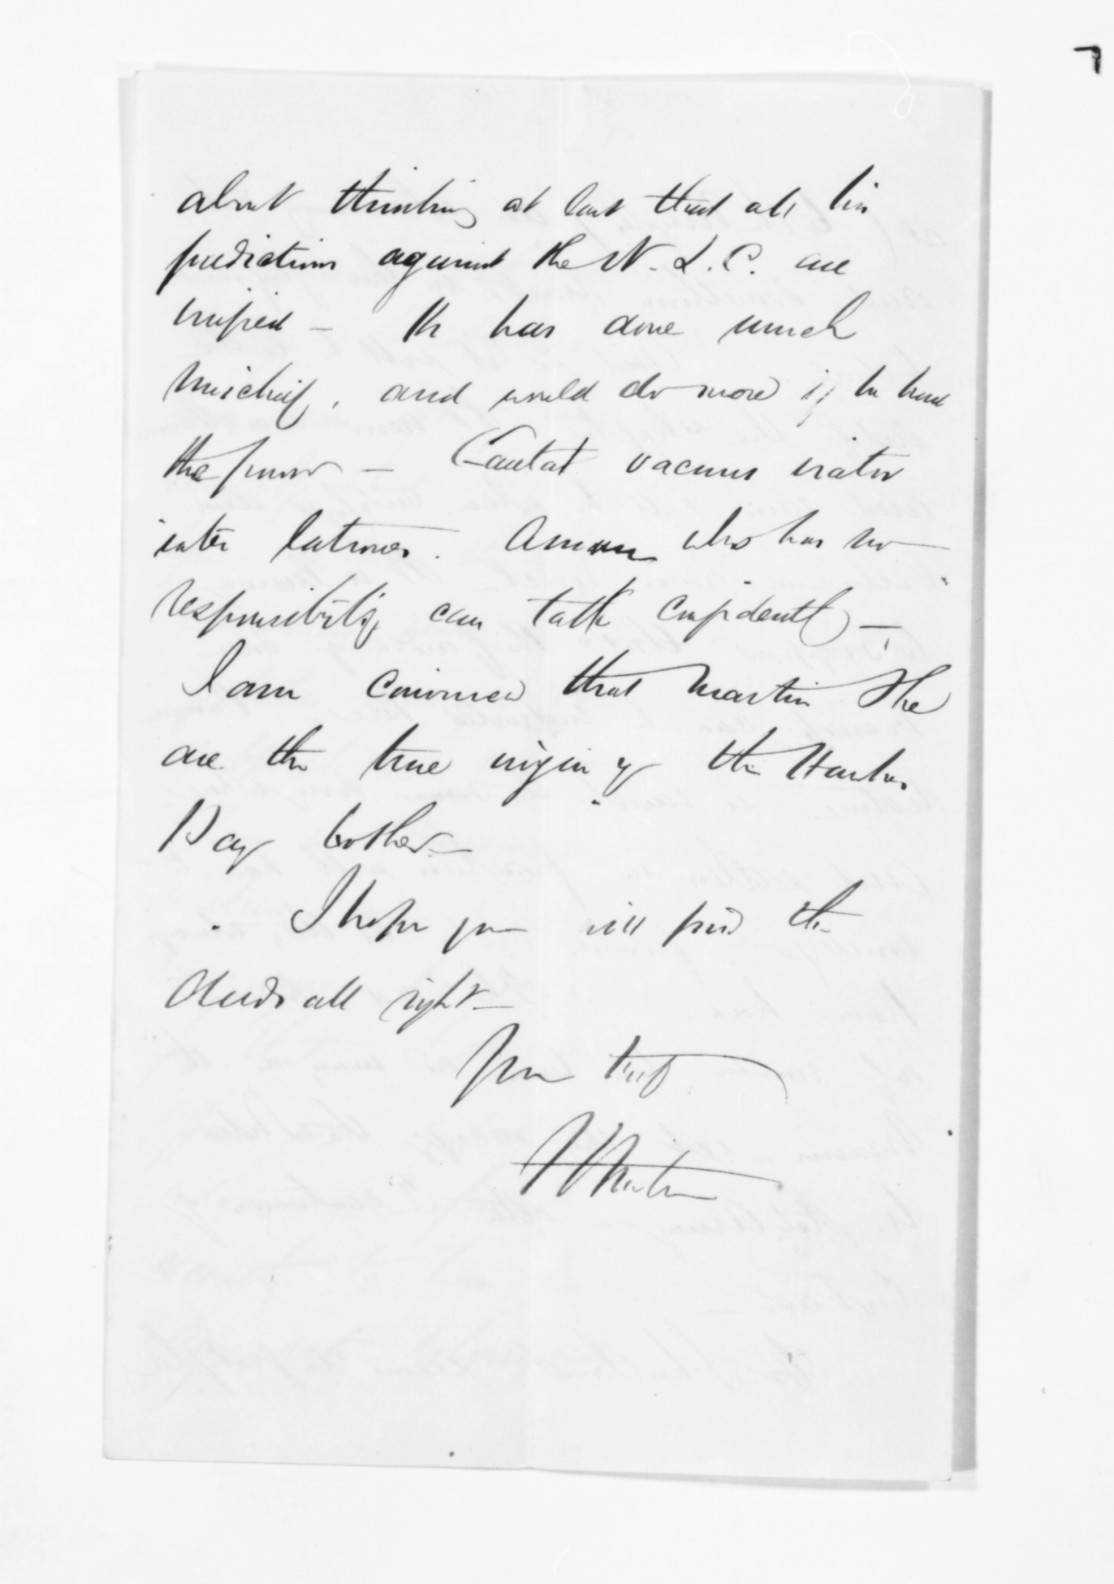 about thinking at last that all his
predictions against the N. L. C. are
verified – He has done much
mischief, and would do more if he had
the power – Cantat vacuus viator
inter latrones. A man who has no
responsibility can talk confidently –
I am convinced that Martin & he
are the true origin of the Hawkes
Bay bother –
I hope you will find the
deeds all right –
Yours truly